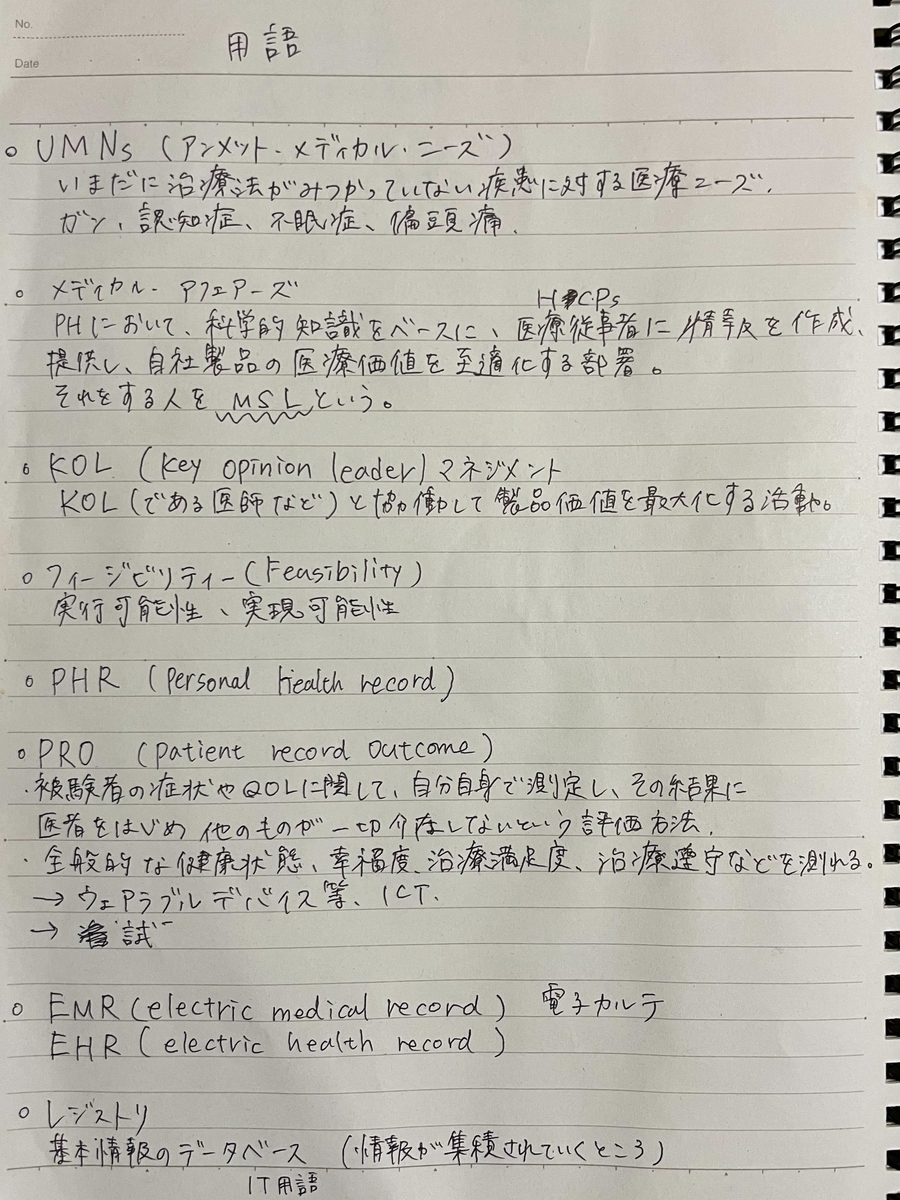 No.
Date
用語
○ UMNs (アンメット・メディカル・ニーズ)
いまだに治療法がみつかっていない疾患に対する医療ニーズ.
ガン、認知症、不眠症、偏頭痛.
○ メディカル・アフェアーズ
HCPs
PHにおいて、科学的知識をベースに、医療従事者に情報を作成、
提供し、自社製品の医療価値を至適化する部署。
それをする人をMSLという。
○ KOL (key opinion leader) マネジメント
KOL(である医師など)と協働して製品価値を最大化する活動。
○ フィージビリティー(Feasibility)
実行可能性、実現可能性
○ PHR (personal health record)
○ PRO (patient record outcome)
・被験者の症状やQOLに関して、自分自身で測定し、その結果に
医者をはじめ他のものが一切介在しないという評価方法.
・全般的な健康状態、幸福度、治療満足度、治療遵守などを測れる。
→ ウェアラブルデバイス等、ICT.
→ 試
○ EMR (electric medical record) 電子カルテ
EHR (electric health record)
○ レジストリ
基本情報のデータベース (情報が集積されていくところ)
IT用語